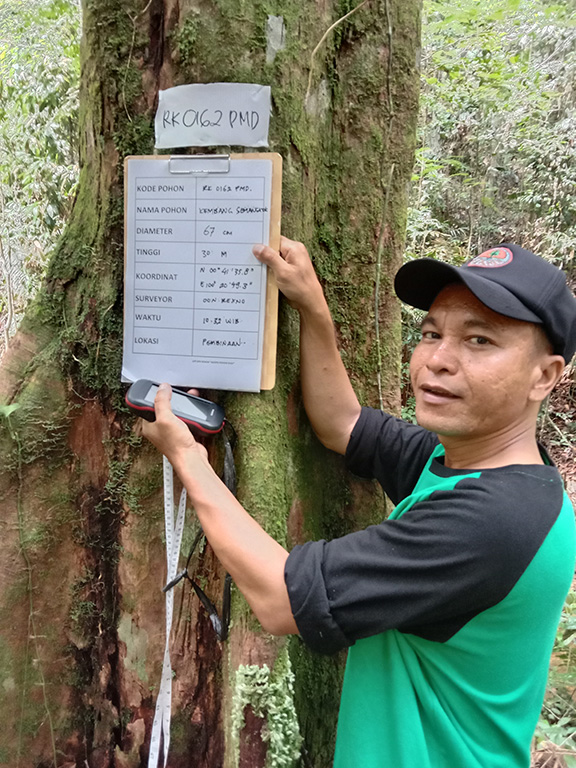 RK 0162 PMD
KODE POHON RK 0162 PMD.
NAMA POHON KEMBANG SEMANGKOK
DIAMETER 67 cm
TINGGI 30 M
KOORDINAT N 00° 41' 35.8"
E 100° 20' 49.3"
SURVEYOR
WAKTU 10.32 WIB
LOKASI PEMBINAAN